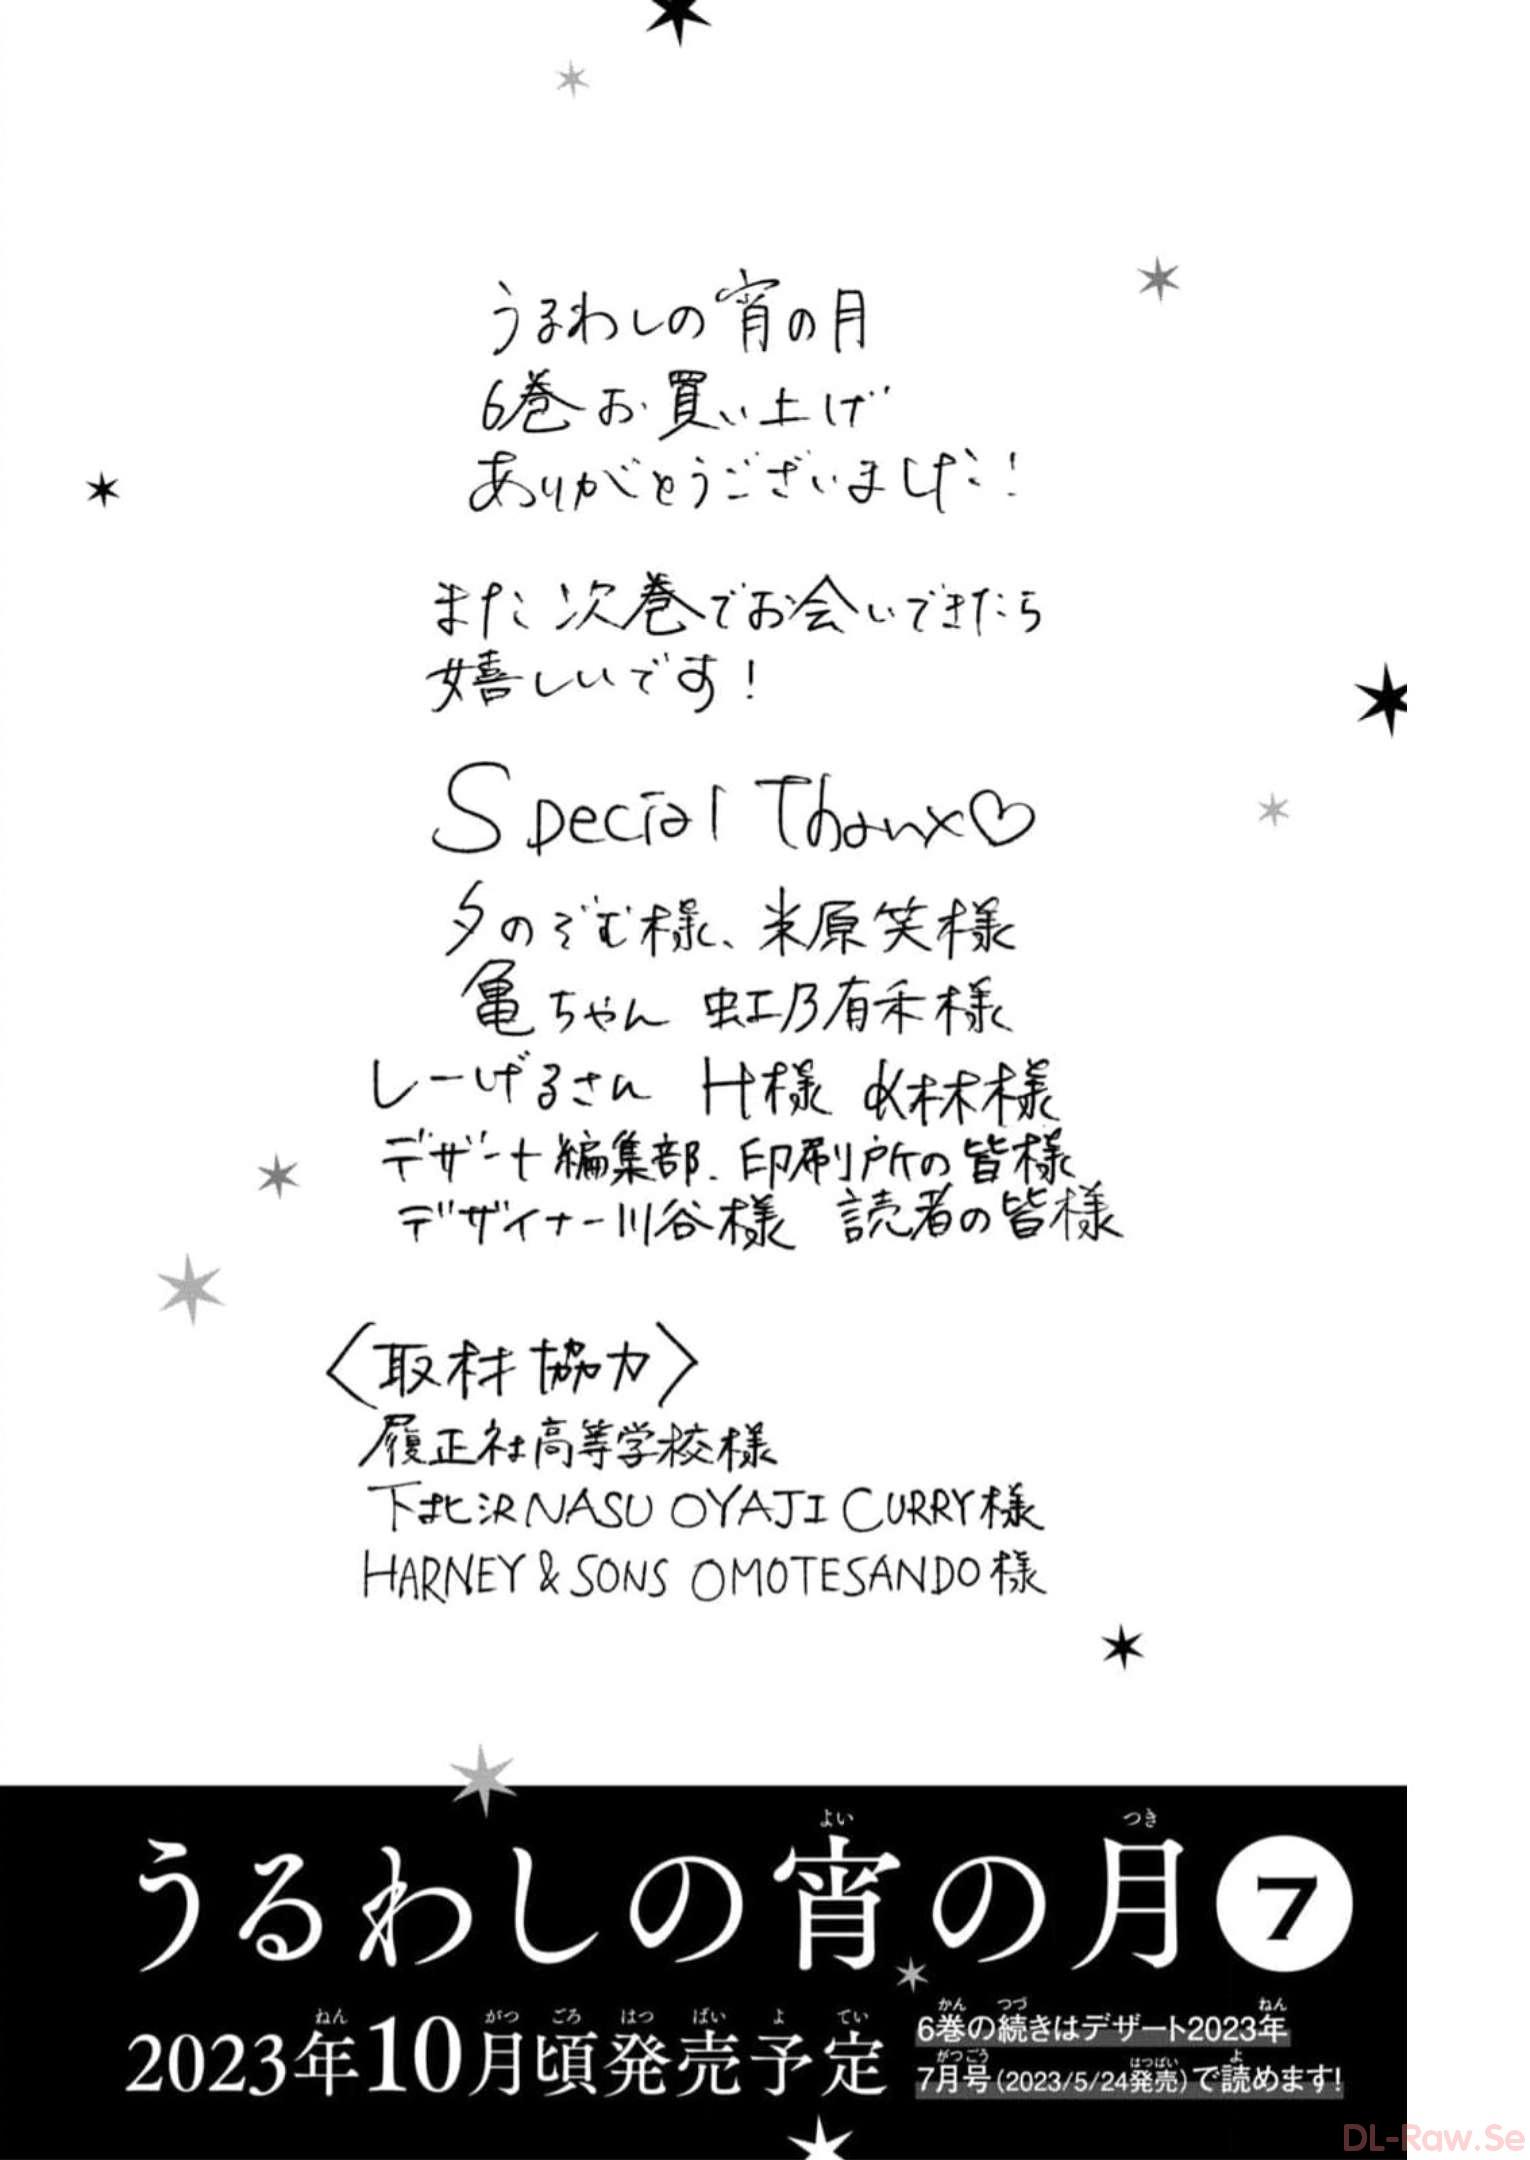 うるわしの宵の月
6巻お買い上げ
ありがとうございました!
また次巻でお会いできたら
嬉しいです!
Special Thanx♡
夕のぞむ様、米原笑様
亀ちゃん 虹乃有禾様
しーげるさん H様 K林様
デザート編集部、印刷所の皆様
デザイナー川谷様 読者の皆様
〈取材協力〉
履正社高等学校様
下北沢NASU OYAJI CURRY様
HARNEY & SONS OMOTESANDO様
うるわしの宵の月7
2023年10月頃発売予定
6巻の続きはデザート2023年
7月号(2023/5/24発売)で読めます!
DL-Raw.Se